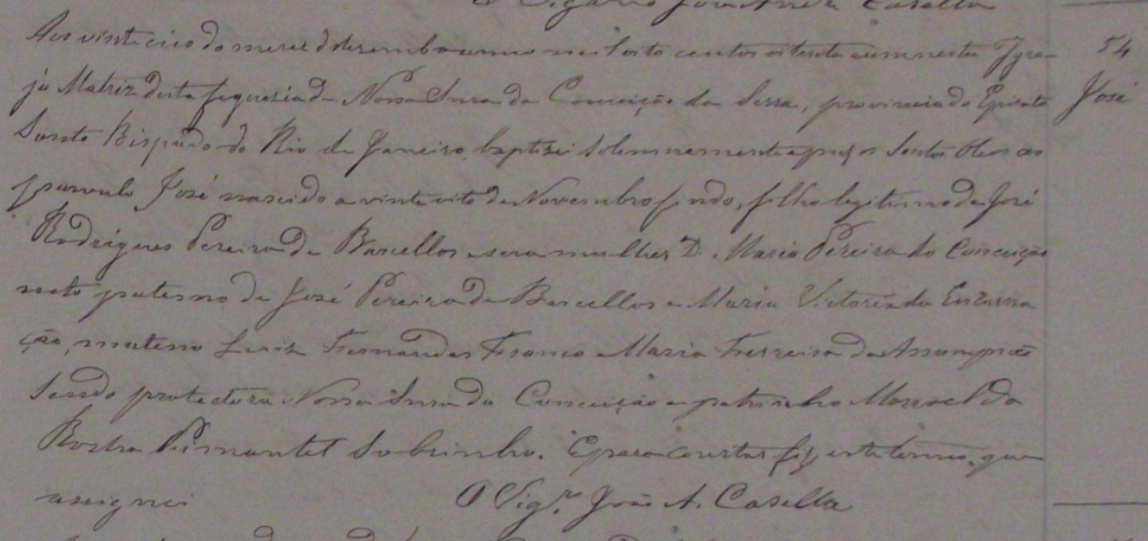 O Vigario João A. Casella
Aos vinte cinco do mes de Dezembro de mil oito centos oitenta e um nesta Igre- 54
ja Matriz desta freguezia de Nossa Snra da Conceição da Serra, provincia do Espirito José
Santo Bispado do Rio de Janeiro, baptisei solemnemente e puz os Santos Oleos ao
parvulo José nascido a vinte oito de Novembro findo, filho legitimo de José
Rodrigues Pereira de Barcellos e sua mulher D. Maria Pereira da Conceição
neto paterno de José Pereira de Barcellos e Maria Victoria da Encarna
ção, materno Luiz Fernandes Franco e Maria Ferreira da Assumpção
Sendo protectora Nossa Snra da Conceição e padrinho Manoel da
Rocha Pimentel Sobrinho. E para constar fiz este termo, que
assignei O Vigr. João A. Casella